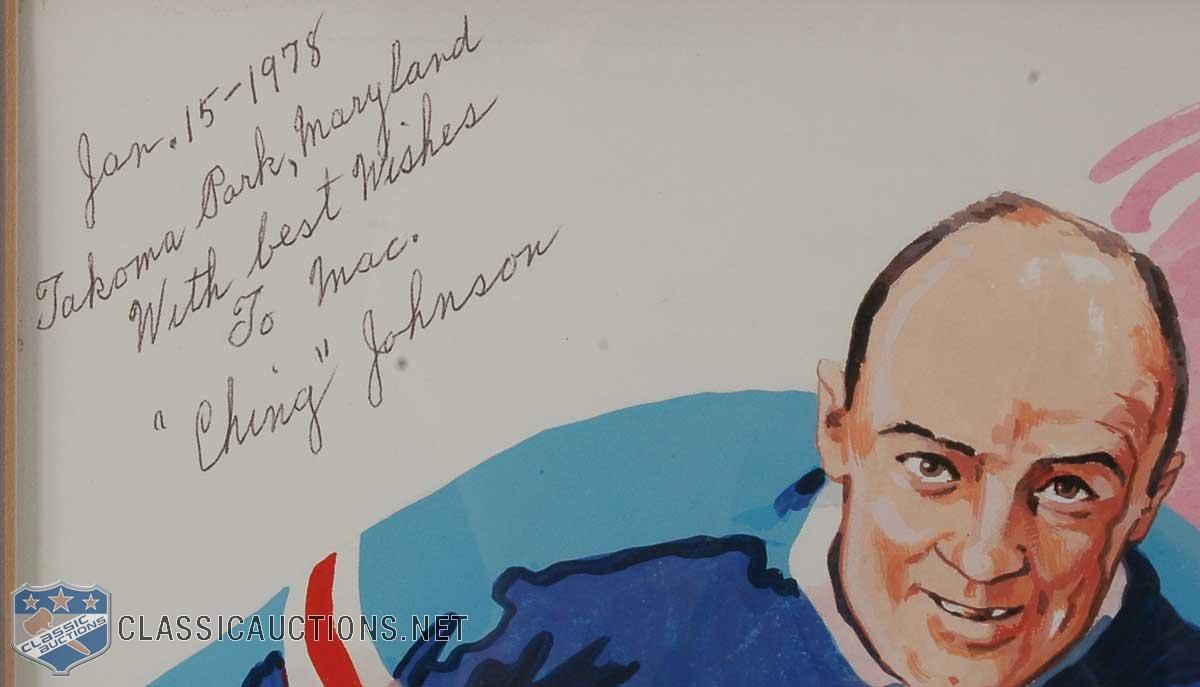 Jan. 15-1978
Takoma Park, Maryland
With best Wishes
To Mac.
"Ching" Johnson
CLASSIC
AUCTIONS
CLASSICAUCTIONS.NET